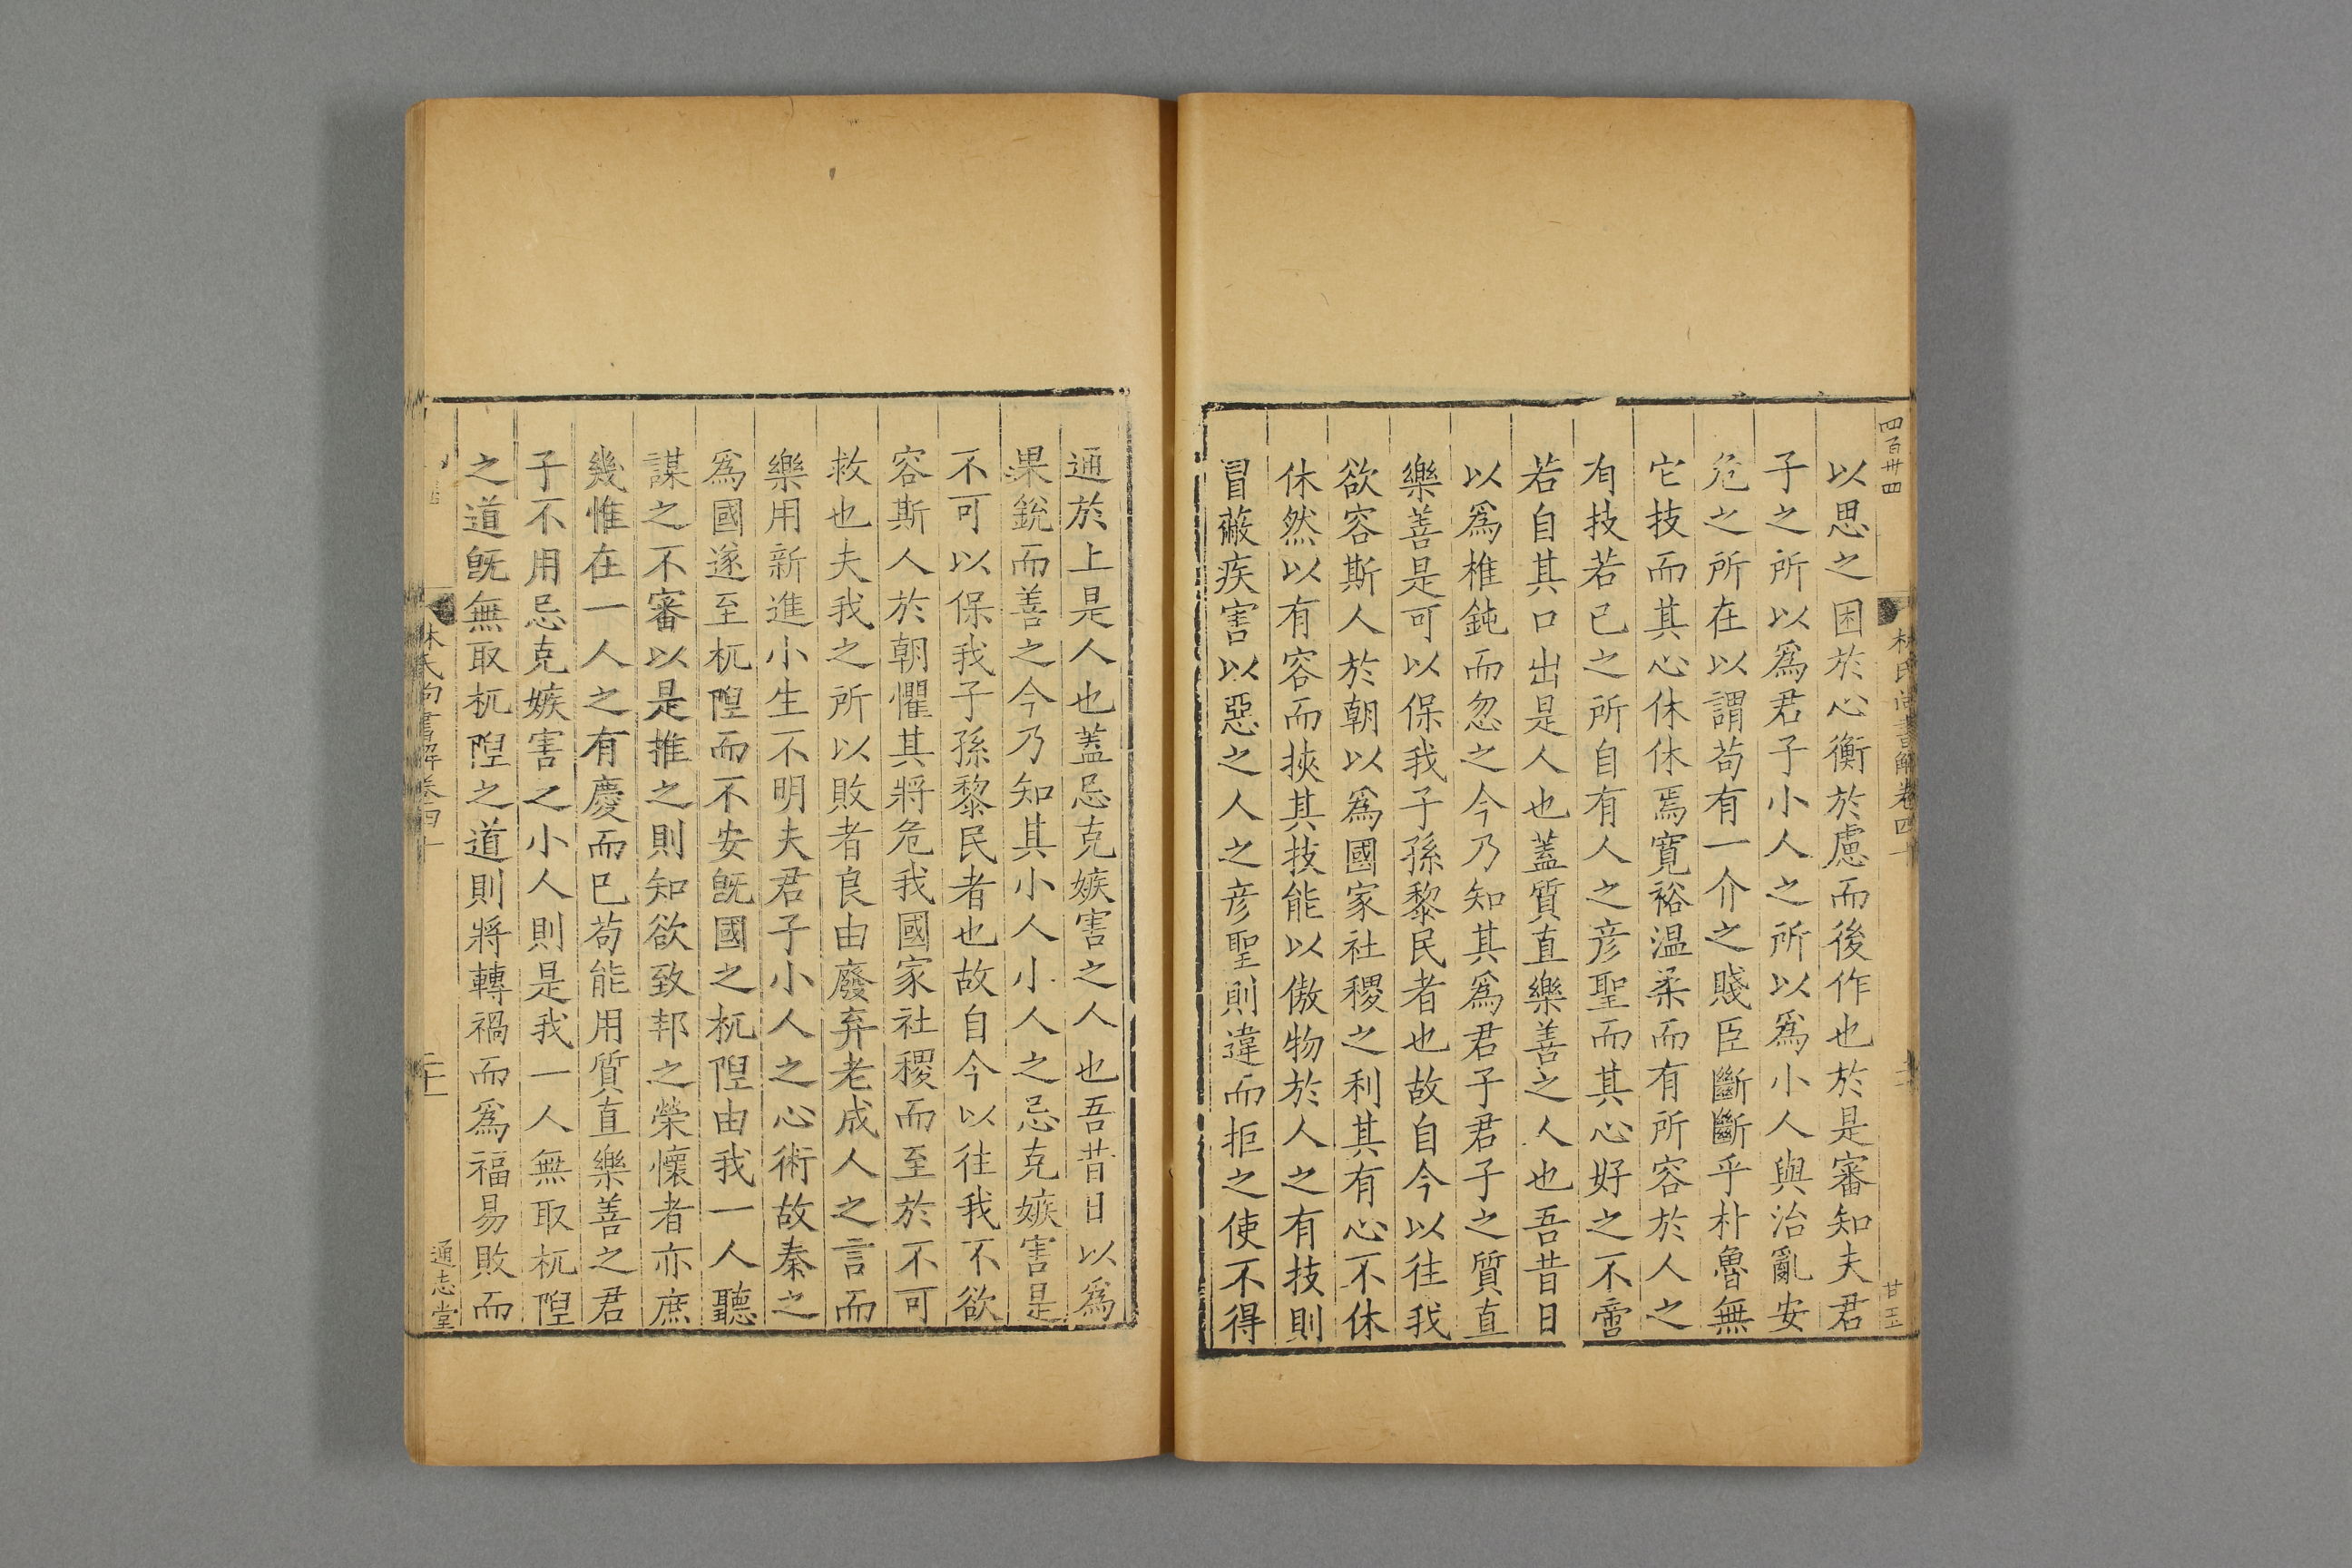 四百卅四
林氏尚書解卷四十
甘玉
以思之困於心衡於慮而後作也於是審知夫君
子之所以爲君子小人之所以爲小人與治亂安
危之所在以謂苟有一介之賤臣斷斷乎朴魯無
它技而其心休休焉寬裕温柔而有所容於人之
有技若已之所自有人之彦聖而其心好之不啻
若自其口出是人也蓋質直樂善之人也吾昔日
以爲椎鈍而忽之今乃知其爲君子君子之質直
樂善是可以保我子孫黎民者也故自今以往我
欲容斯人於朝以爲國家社稷之利其有心不休
休然以有容而挾其技能以傲物於人之有技則
冒蔽疾害以惡之人之彦聖則違而拒之使不得
通於上是人也蓋忌克嫉害之人也吾昔日以爲
果銳而善之今乃知其小人小人之忌克嫉害是
不可以保我子孫黎民者也故自今以往我不欲
容斯人於朝懼其將危我國家社稷而至於不可
救也夫我之所以敗者良由廢弃老成人之言而
樂用新進小生不明夫君子小人之心術故秦之
爲國遂至杌隉而不安旣國之杌隉由我一人聽
謀之不審以是推之則知欲致邦之榮懷者亦庶
幾惟在一人之有慶而巳苟能用質直樂善之君
子不用忌克嫉害之小人則是我一人無取杌隉
之道旣無取杌隉之道則將轉禍而爲福易敗而
林氏尚書解卷四十
通志堂